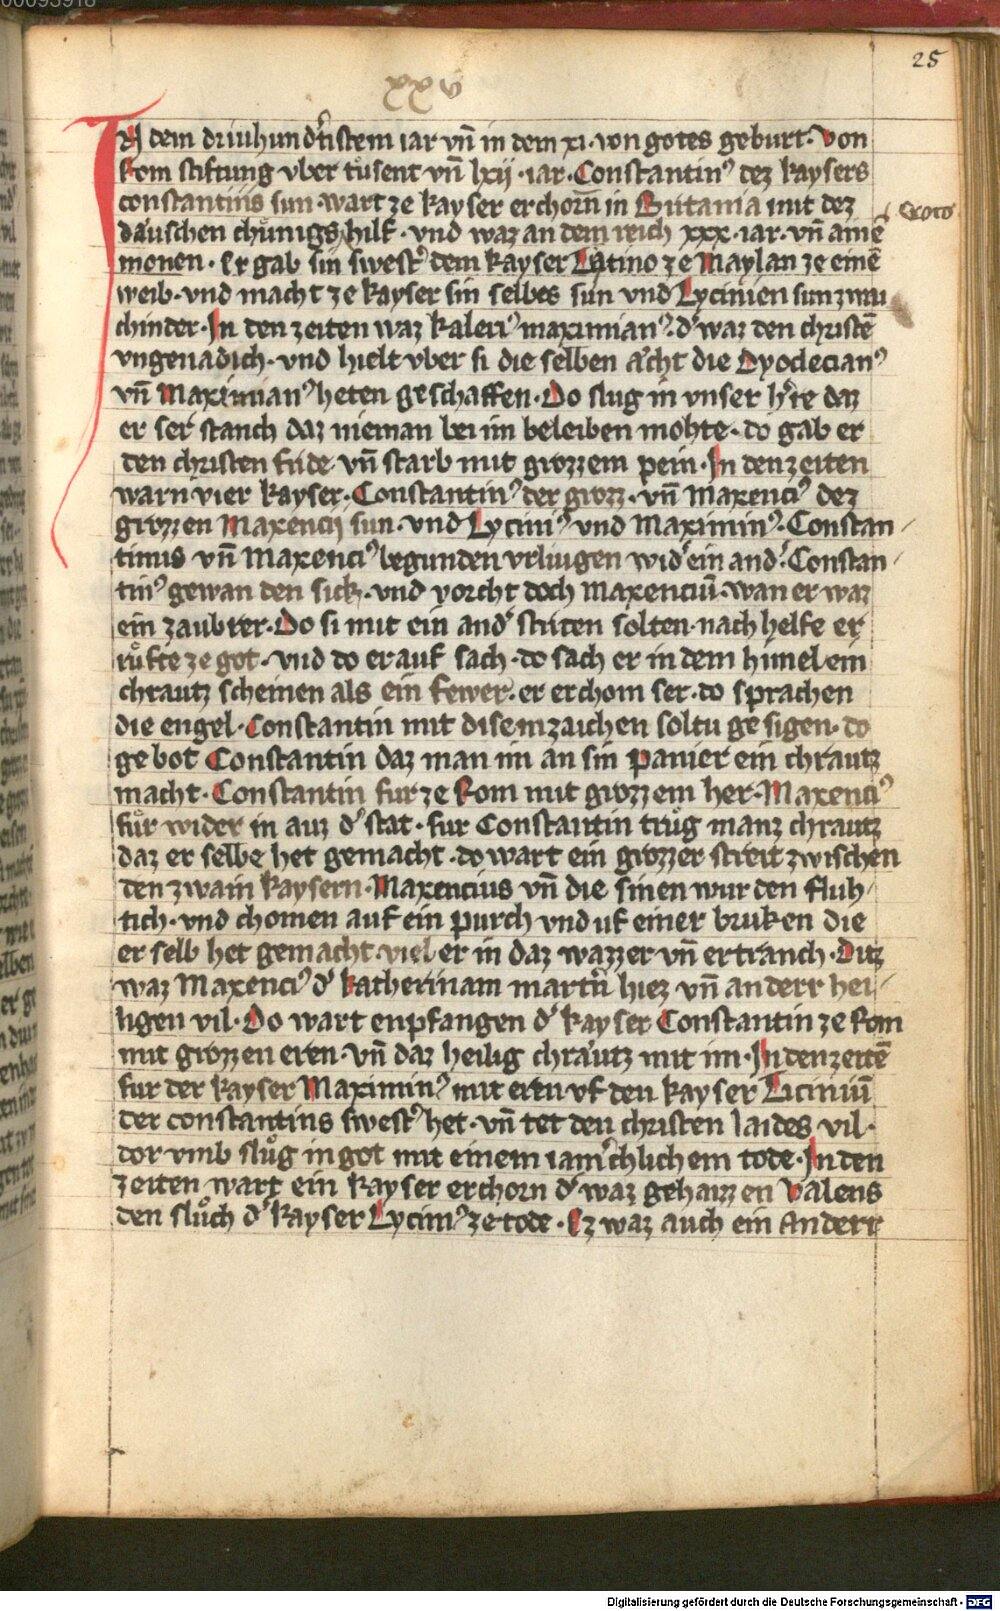 00093918
25
xxv
In dem driuhundr̄tistem iar vn̄ in dem xi. von gotes geburt. Von
Rom stiftung vber tůsent vn̄ lxij. iar. Constantin⁹ dez kaysers
constantiis sun. wart ze kayser erchorn in Britania mit dez Croco
däuschen chůnigs hilf. vnd waz an dem reich xxx. iar. vn̄ ainē
monen. Er gab sin swest' dem kayser Latino ze Maylan ze einē
weib. vnd macht ze kayser sin selbes sun vnd Lycinien sun zwai
chinder. In den zeiten waz kaleri⁹ maximian⁹. d' waz den christē
vngenadich. vnd hielt vber si die selben ächt die Dyodecian⁹
vn̄ Maximian⁹ heten geschaffen. Do slug in vnser h're daz
er ser stanch daz nieman bei im beleiben mohte. do gab er
den christen fride vn̄ starb mit grozzem pein. In den zeiten
warn vier kayser. Constantin⁹ der grozz. vn̄ maxenci⁹ dez
grozzen Maxencij sun. vnd Lycini⁹ vnd Maximin⁹. Constan/
tinus vn̄ Maxenci⁹ begunden vrliugen wid' ein and'. Constan/
tin⁹ gewan den sick. vnd vorcht doch Maxenciū. wan er waz
ein zaubrer. Do si mit ein and' striten solten. nach helfe er
růfte ze got. vnd do er auf sach. do sach er in dem himel ein
chrautz scheinen als ein fewer. er erchom ser. do sprachen
die engel. Constantin mit disem zaichen soltu gesigen. do
gebot Constantin daz man im an sin panier ein chrautz
macht. Constantin fur ze Rom mit grozzem her. Maxenci⁹
fůr wider in auz d' stat. fur Constantin trůg manz chrautz
daz er selbe het gemacht. do wart ein grozzer streit zwischen
den zwain kaysern. Maxencius vn̄ die sinen wurden fluh/
tich. vnd chomen auf ein purch vnd uf einer bruken die
er selb het gemacht viel er in daz wazzer vn̄ ertranch. Ditz
waz Maxenci⁹ d' katherinam martrn hiez vn̄ anderr hei/
ligen vil. Do wart enpfangen d' kayser Constantin ze Rom
mit grozzen eren. vn̄ daz heilig chräutz mit im. In den zeitē
fur der kayser Maximin⁹ mit eren vf den kayser Liciniū
der constantins swest' het. vn̄ tet den christen laides vil.
dor vmb slůg in got mit einem iam'chlichem tode. In den
zeiten wart ein kayser erchorn d' waz gehaizzen Valens
den slůch d' kayser Lycini⁹ ze tode. Ez waz auch ein anderr
Digitalisierung gefördert durch die Deutsche Forschungsgemeinschaft - DFG